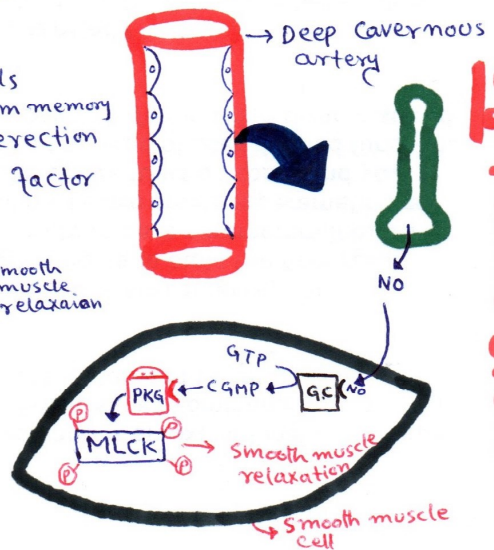 → Deep Cavernous
artery
m memory
erection
Factor
smooth
muscle
relaxaion
NO
GTP
PKG
CGMP
GC
NO
P
P
MLCK
P
P
Smooth muscle
relaxation
Smooth muscle
cell